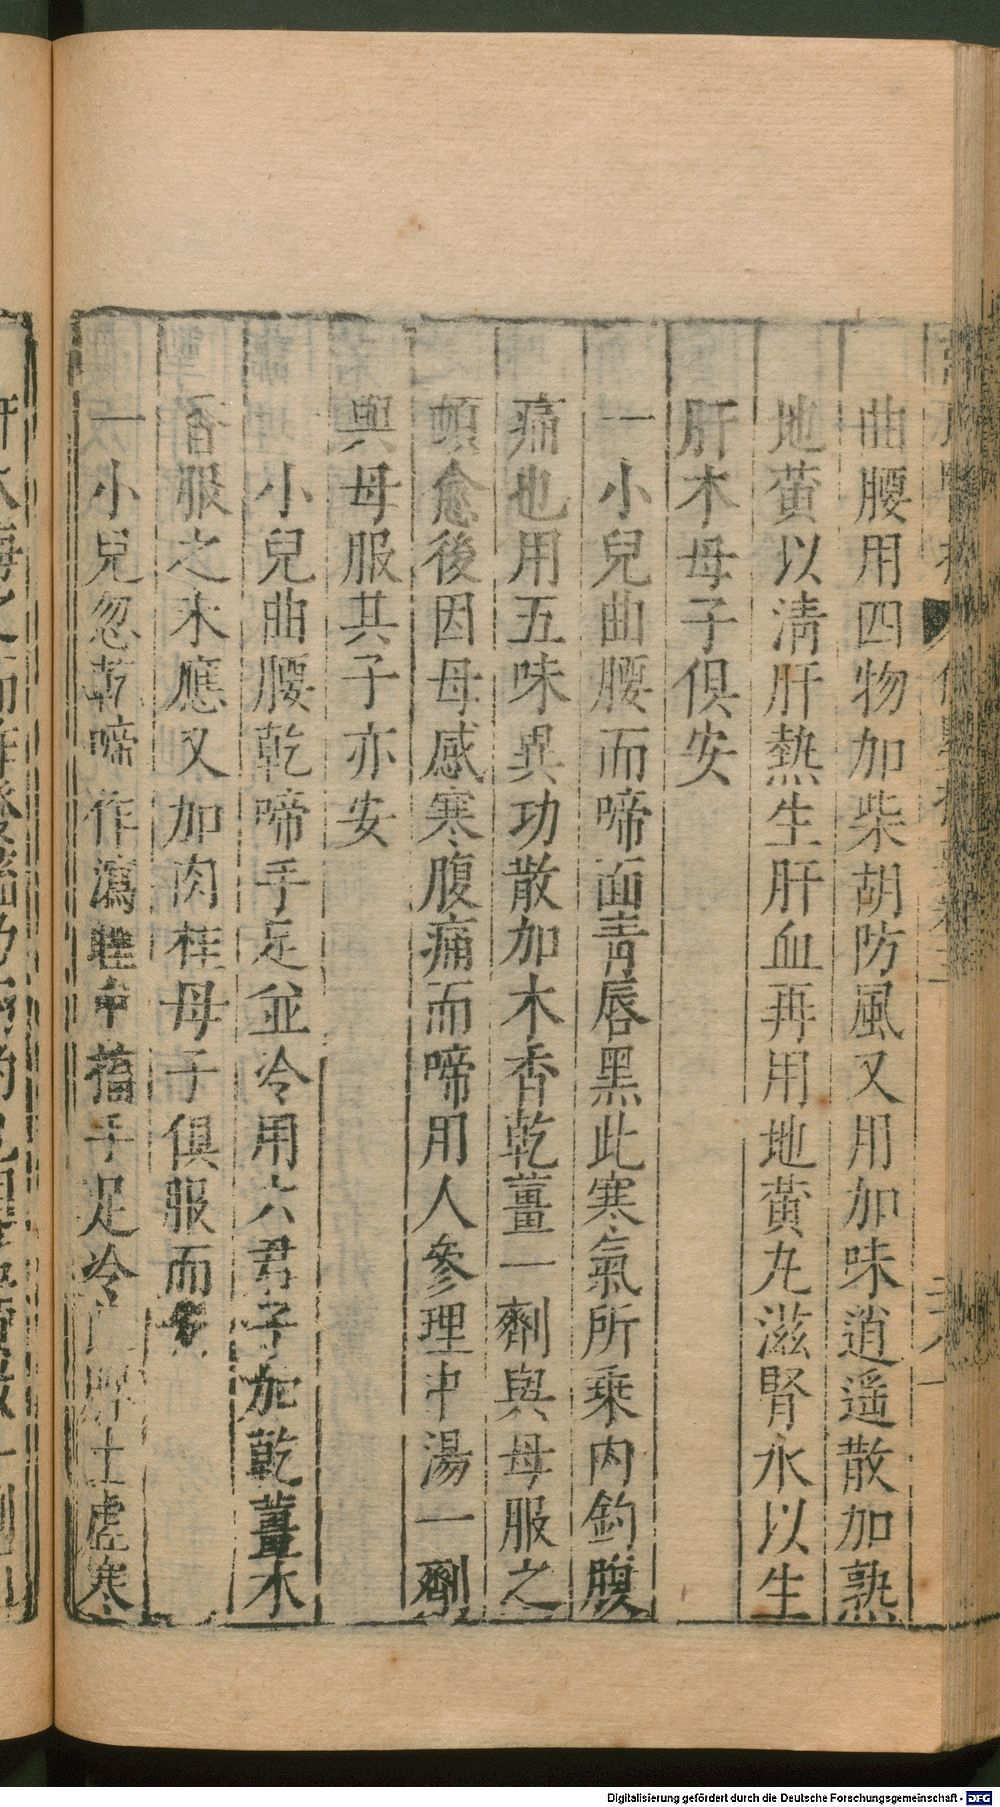 曲腰用四物加柴胡防風又用加味逍遥散加熟
地黄以清肝熱生肝血再用地黄丸滋腎水以生
肝木母子俱安
一小兒曲腰而啼面青唇黑此寒氣所乗内釣腹
痛也用五味異功散加木香乾薑一劑與母服之
頓愈後因母感寒腹痛而啼用人參理中湯一劑
與母服其子亦安
小兒曲腰乾啼手足並冷用六君子加乾薑木
香服之未應又加肉桂母子俱服而
一小兒忽乾啼作瀉睡中搐手足冷脾土虚寒
Digitalisierung gefördert durch die Deutsche Forschungsgemeinschaft - DFG